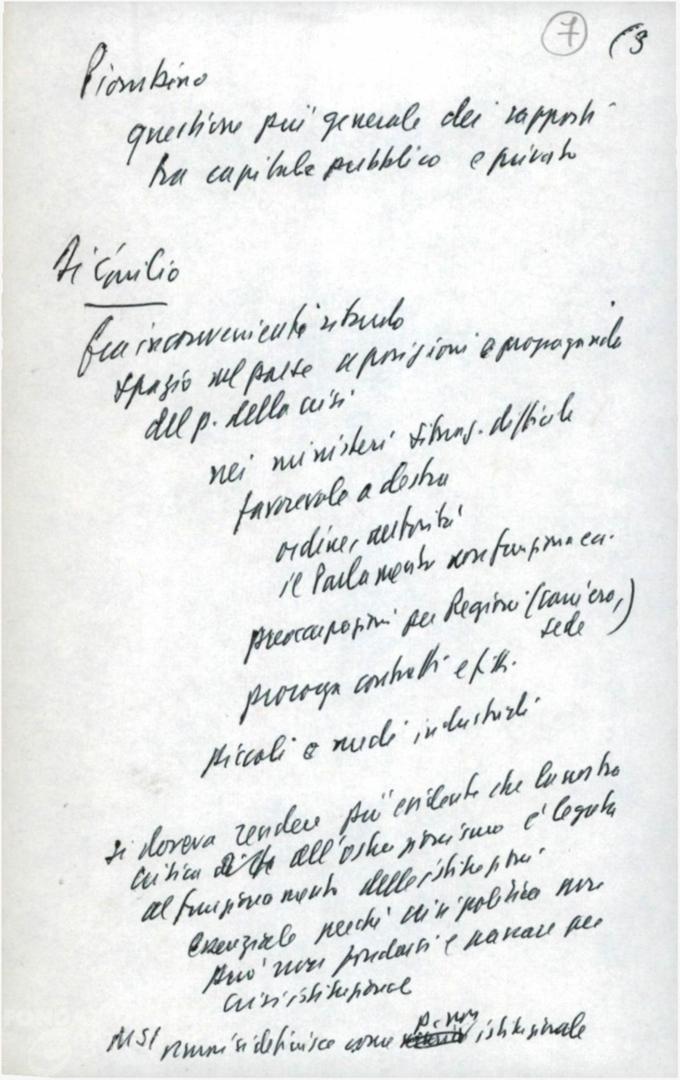 7 (3
Piombino
questione più generale dei rapporti
tra capitale pubblico e privato
Di Giulio
fra inconvenienti ritardo
spazio nel paese a posizioni e propaganda
del p. della crisi
nei ministeri situaz. difficile
favorevole a destra
ordine, autorità
il Parlamento non funziona ecc.
preoccupazioni per Regioni (
sede
proroga contratti e fitti.
piccoli e medi industriali
si doveva rendere più evidente che la nostra
critica all'ostruzionismo è legata
al funzionamento delle istituzioni
essenziale perché crisi politica non
può non e passare per
crisi istituzionale
MSI si definisce come istituzionale